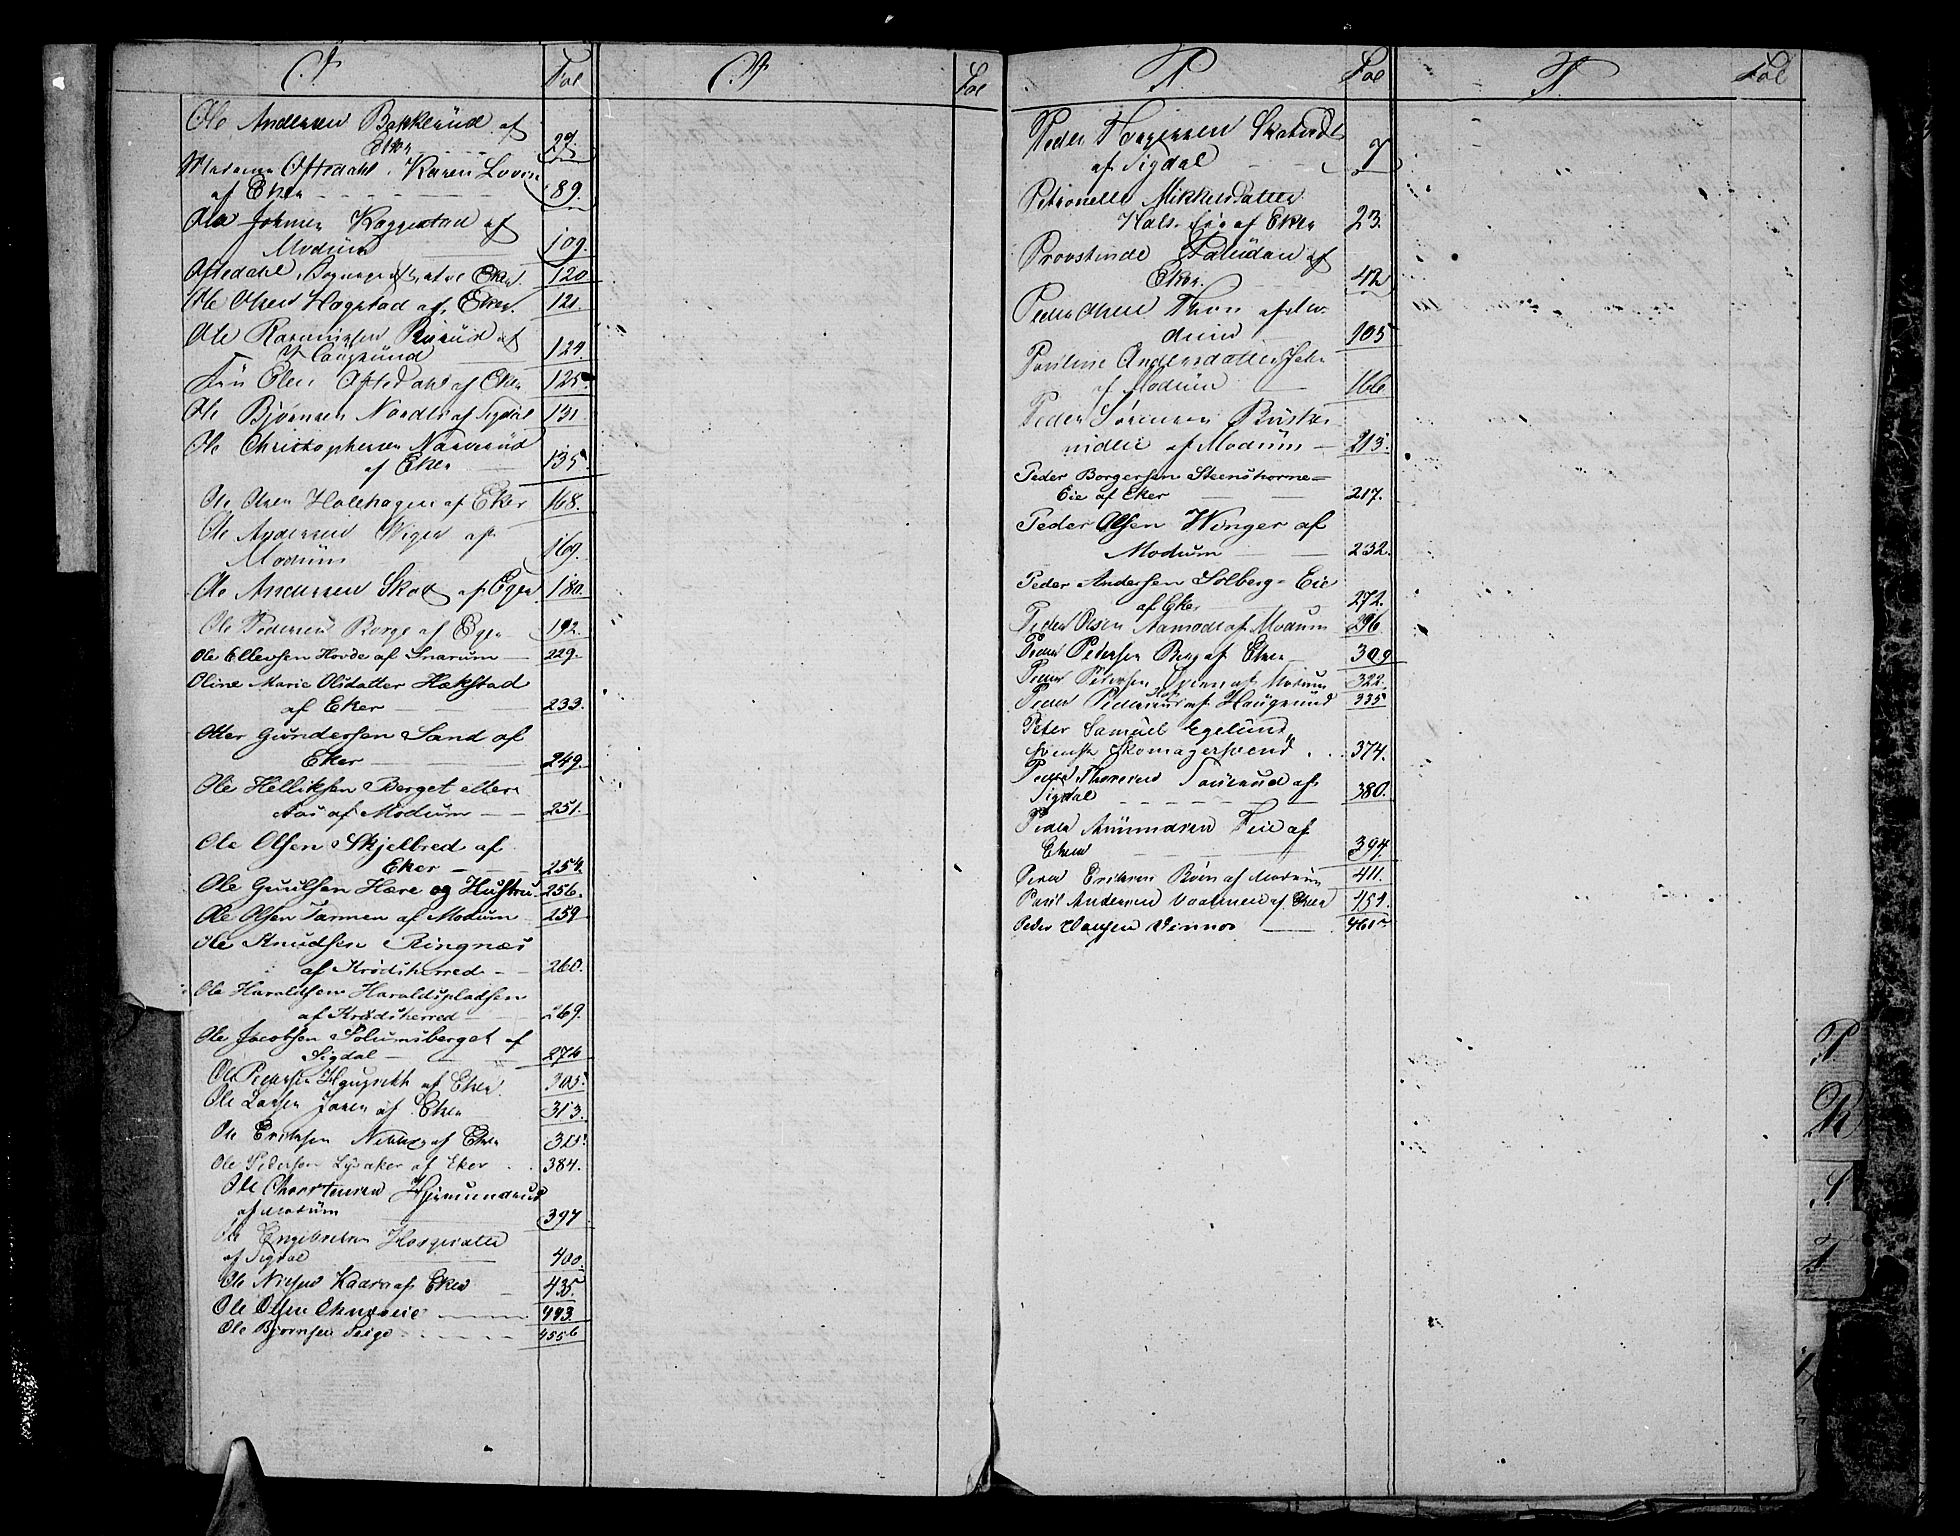 O. Fol O Fol
Ole Andersen Bakkerud af
Eker 27.
Madame Oftedahl, Karen Lovise
af Eker 89.
Ole Johnsen Kaggestad af
Modum 109.
Oftedahl, af Eker 120.
Ole Olsen Hagstad af Eker. 121.
Ole Rud af
Haugsund 124
Oftedahl af Eker 125.
Ole Bjørnsen af Sigdal 131
Ole Christophersen Narverud
af Eker 135.
Ole Olsen Holehagen af Eker 168.
Ole Andersen Wiger af
Modum 169.
Ole Andersen af Eger 180.
Ole Pedersen Borge af Eger 192.
Ole Ellevsen Hovde af Snarum 229.
Oline Marie Olsdatter Hækstad
af Eker 233.
Otter Gundersen Sand af
Eker 249.
Ole Helliksen Berget eller
Aas af Modum 251.
Ole Olsen Skjelbred af
Eker 254.
Ole Guulsen Hære og Hustru 256.
Ole Olsen Tarmen af Modum 259
Ole Knudsen Ringnæs
af Krødsherred 260.
Ole Haraldsen Haraldspladsen
af Krødsherred 269.
Ole Jacobsen Solumsberget af
Sigdal 274
Ole Pedersen af Eker. 305.
Ole Larsen Jaren af Eker 313.
Ole Eriksen af Eker 315.
Ole Pedersen Lysaker af Eker 384.
Ole Thorstensen Hjemundrud
af Modum 397
Ole Engebretsen
af Sigdal 400.
Ole Nielsen Kaara af Eker 435.
Ole Olsen 443.
Ole Bjørnsen Teige 455 b
P. Fol P Fol
Peder
af Sigdal 7
Petronelle Mikkelsdatter
Hals Eie af Eker 23.
Provstinde Paludan af
Eker. 42
Peder Olsen Thon af Mo-
dum 105
Pauline Andersdatter
af Modum 166
Peder Sørensen
af Modum 213.
Peder Borgersen Steenshorne=
Eie af Eker 217.
Peder Olsen Winger af
Modum 232.
Peder Andersen Solberg= Eie
af Eker 272.
Peder Olsen Aamodt af Modum 296.
Peder Pedersen Berg af Eker 309
Peder Pedersen af Modum 322.
Peder Pedersen af Haugsund 335
Peter Samuel Egelund
svensk Skomagersvend 374.
Peder Thoresen af
Sigdal 380.
Peder Amundsen Teie af
Eker 394.
Peder Eriksen Bøen af Modum 411.
Paul Andersen af Eker 454.
Peder Hansen Vinnes
P
R
S
T